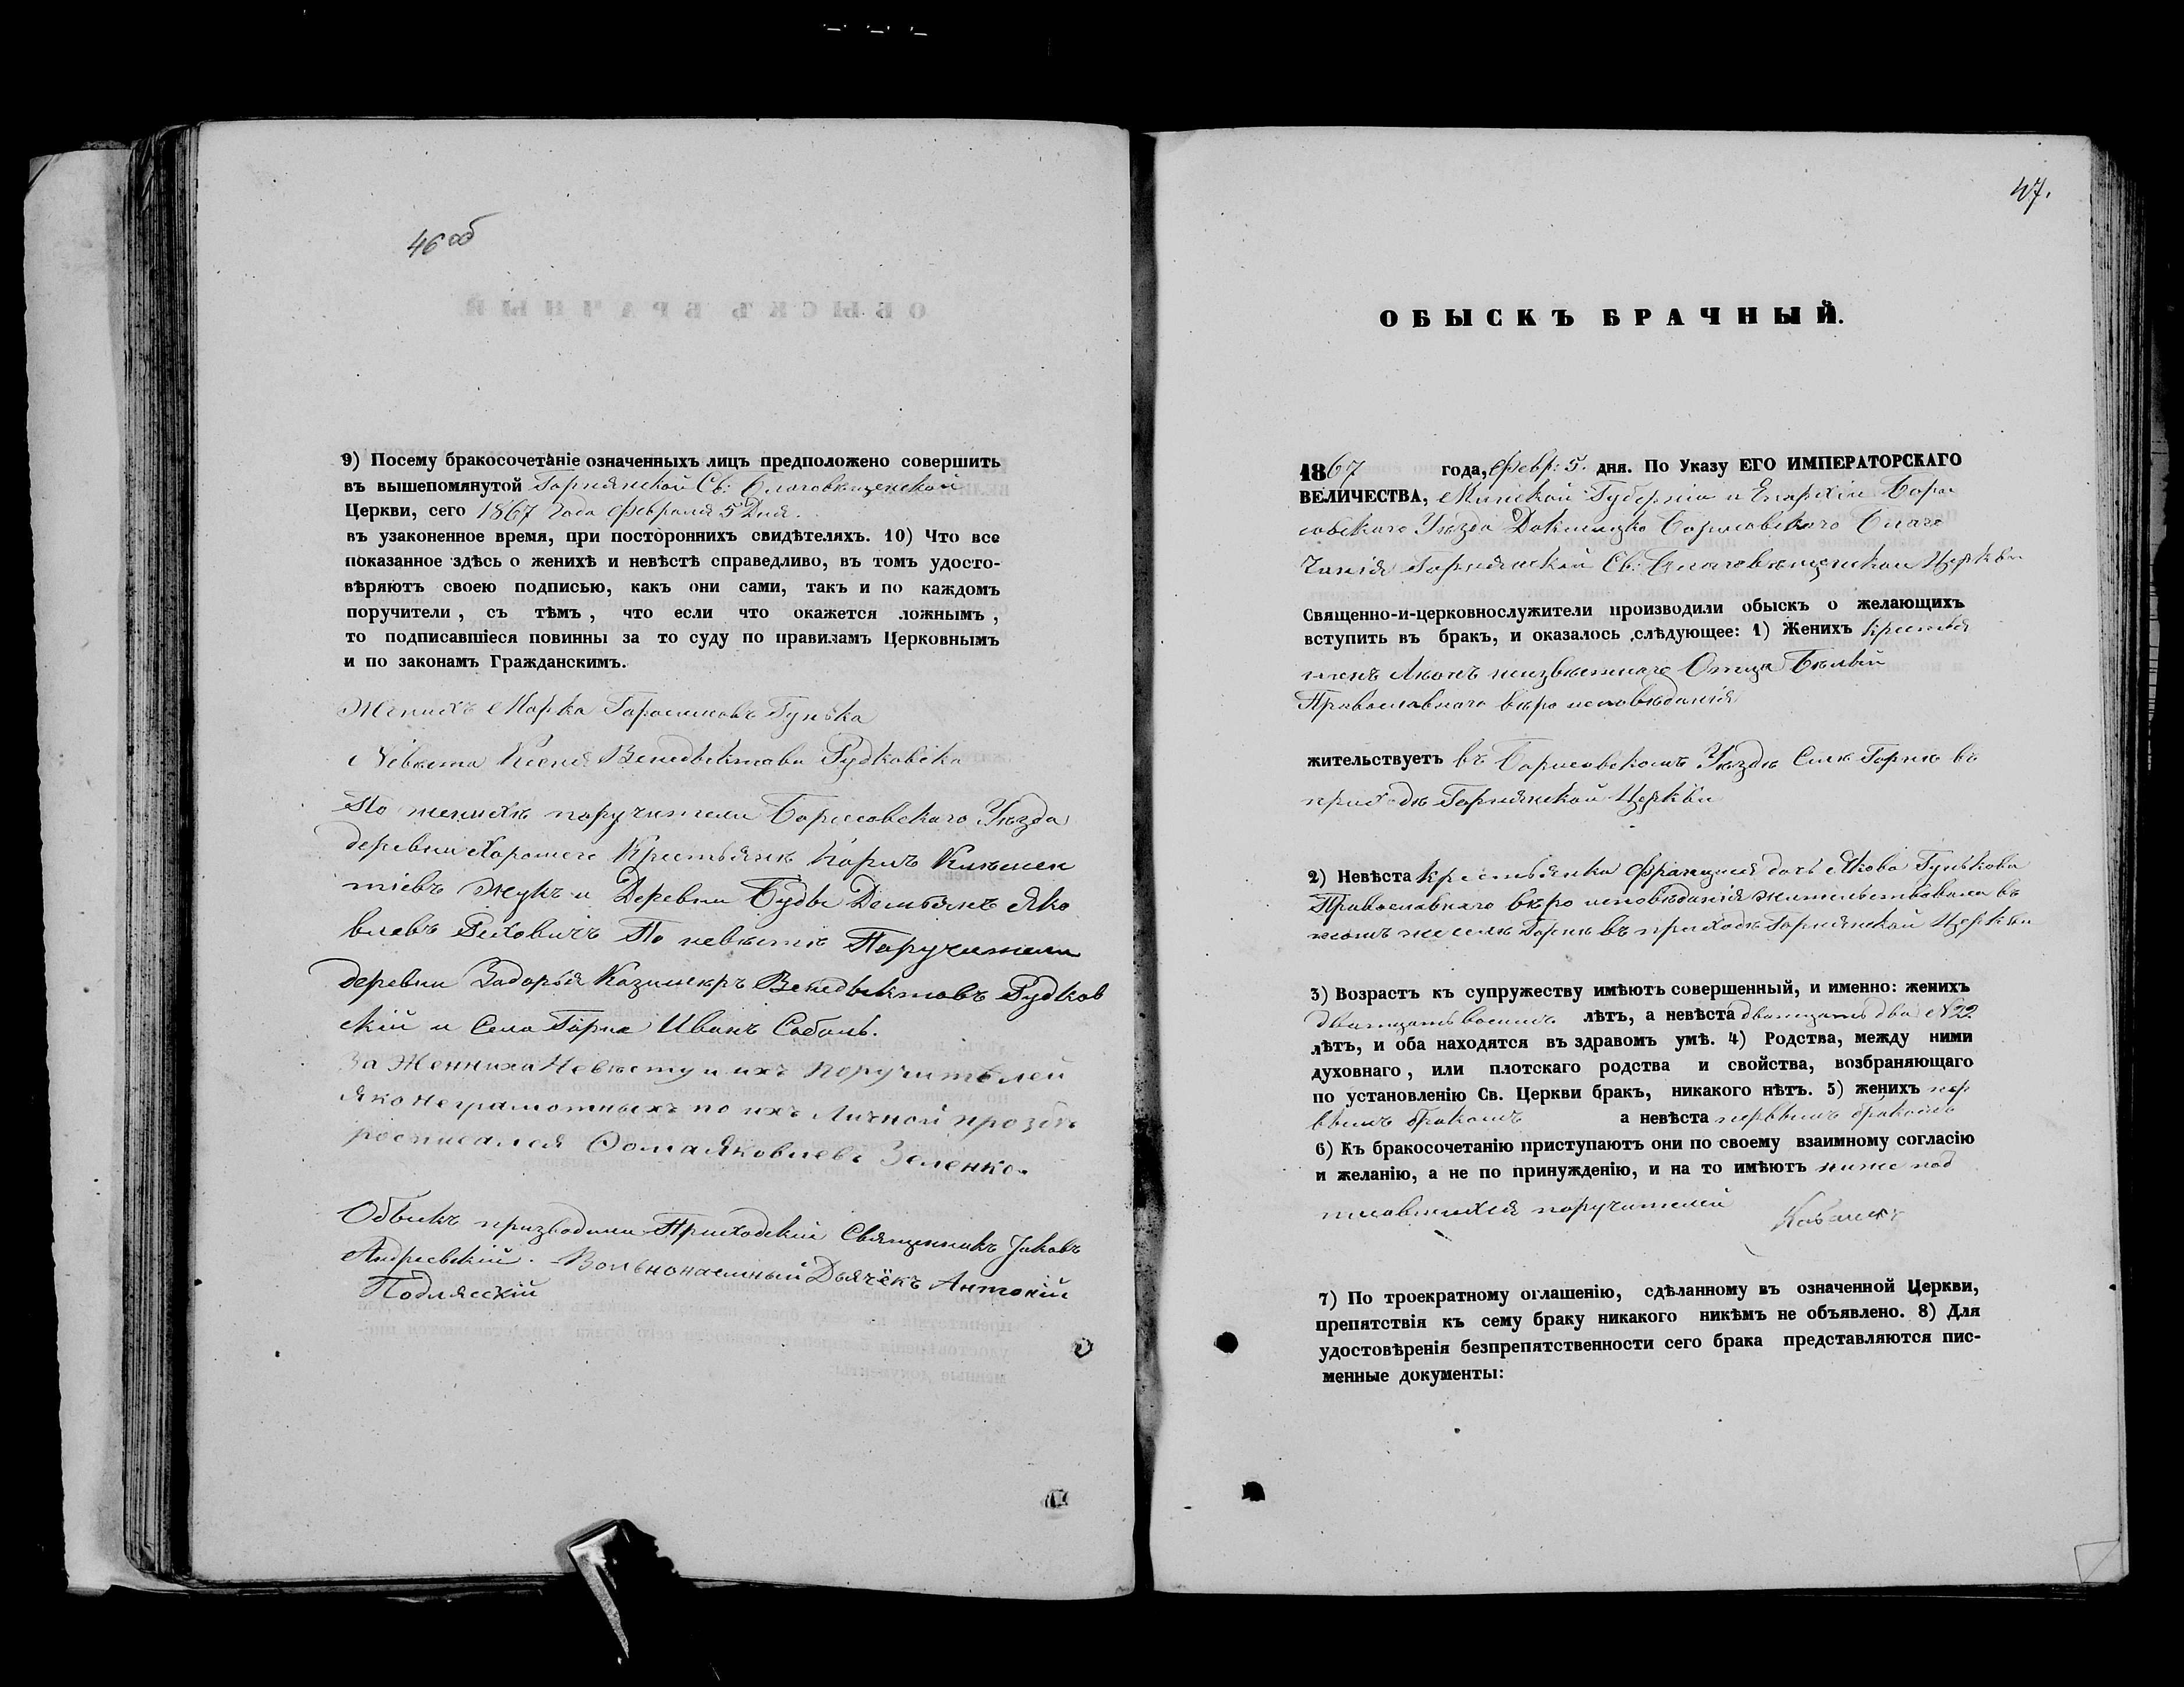 46 об
9) Посему бракосочетаніе означенныхъ лицъ предположено совершить
въ вышепомянутой Горнянской Св: Благовѣщенской
Церкви, сего 1867 Года Февраля 5 Дня.
въ узаконенное время, при постороннихъ свидѣтеляхъ. 10) Что все
показанное здѣсь о женихѣ и невѣстѣ справедливо, въ томъ удосто-
вѣряютъ своею подписью, какъ они сами, такъ и по каждомъ
поручители, съ тѣмъ, что если что окажется ложнымъ,
то подписавшіеся повинны за то суду по правиламъ Церковнымъ
и по законамъ Гражданскимъ.
Женихъ Марка Гунька
Невѣста Ксенія Венедыктова Рудковска
По женихѣ поручители Борисовскаго Уѣзда
деревни Хорошего Крестьянѣ Карлъ
Жукъ и Деревни Буды Демьянъ Яко
влевъ Рыховичъ По невѣстѣ Поручители
деревни Задорья Казимѣръ Венедыктовъ Рудков
скій и Села Горна Иванъ Соболь.
За Женниха Невѣсту и ихъ поручителей
яко неграмотныхъ по ихъ личной прозбѣ
росписался Фома Яковлевъ Зеленко.
Обыскъ призводили Приходскій Священникъ Іаковъ
Андреевскій. Вольнонаемный Дьячёкъ Антоній
Подлясскій
47.
ОБЫСКЪ БРАЧНЫЙ.
1867 года, Февр: 5. дня. По Указу ЕГО ИМПЕРАТОРСКАГО
ВЕЛИЧЕСТВА, Минской Губерніи и Епархіи Бори
совскаго Уѣзда Докшицко Борисовскаго Благо
чинія Горнянской Св: Благовѣщенской Церкви
Священно-и-церковнослужители производили обыскъ о желающихъ
вступить въ бракъ, и оказалось слѣдующее: 1) Женихъ крестья
нинъ неизвѣстнаго Отца Бѣлый
Православнаго вѣро исповѣданія
жительствуетъ въ Борисовскомъ Уѣздѣ Селѣ Горнѣ въ
приходѣ Горнянской Церкви
2) Невѣста крестьянка Францишка дочь Якова Гунькова
Православнаго вѣро исповѣданія жительствовала въ
томъ же селѣ Горнѣ въ приходѣ Горнянской Церкви
3) Возрастъ къ супружеству имѣютъ совершенный, и именно: женихъ
дватцать восимъ лѣтъ, а невѣста дватцать два №22
лѣтъ, и оба находятся въ здравомъ умѣ. 4) Родства, между ними
духовнаго, или плотскаго родства и свойства, возбраняющаго
по установленію Св. Церкви бракъ, никакого нѣтъ. 5) женихъ пер
вымъ бракомъ а невѣста первымъ бракомъ
6) Къ бракосочетанію приступаютъ они по своему взаимному согласію
и желанію, а не по принужденію, и на то имѣютъ ниже под
писавшихся поручителей
7) По троекратному оглашенію, сдѣланному въ означенной Церкви,
препятствія къ сему браку никакого никѣмъ не объявлено. 8) Для
удостовѣренія безпрепятственности сего брака представляются пис-
менные документы: